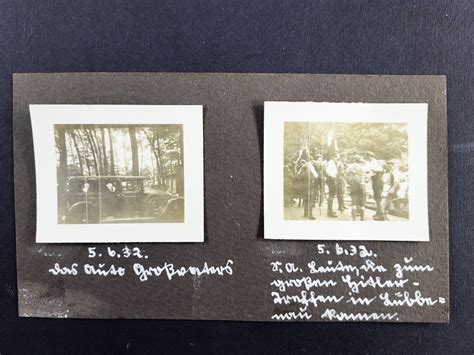 5.6.32.
Das Auto Großvaters
5.6.32.
S.A. Leute, die zum
großen Hitler-
treffen in Lübbe-
nau kamen.